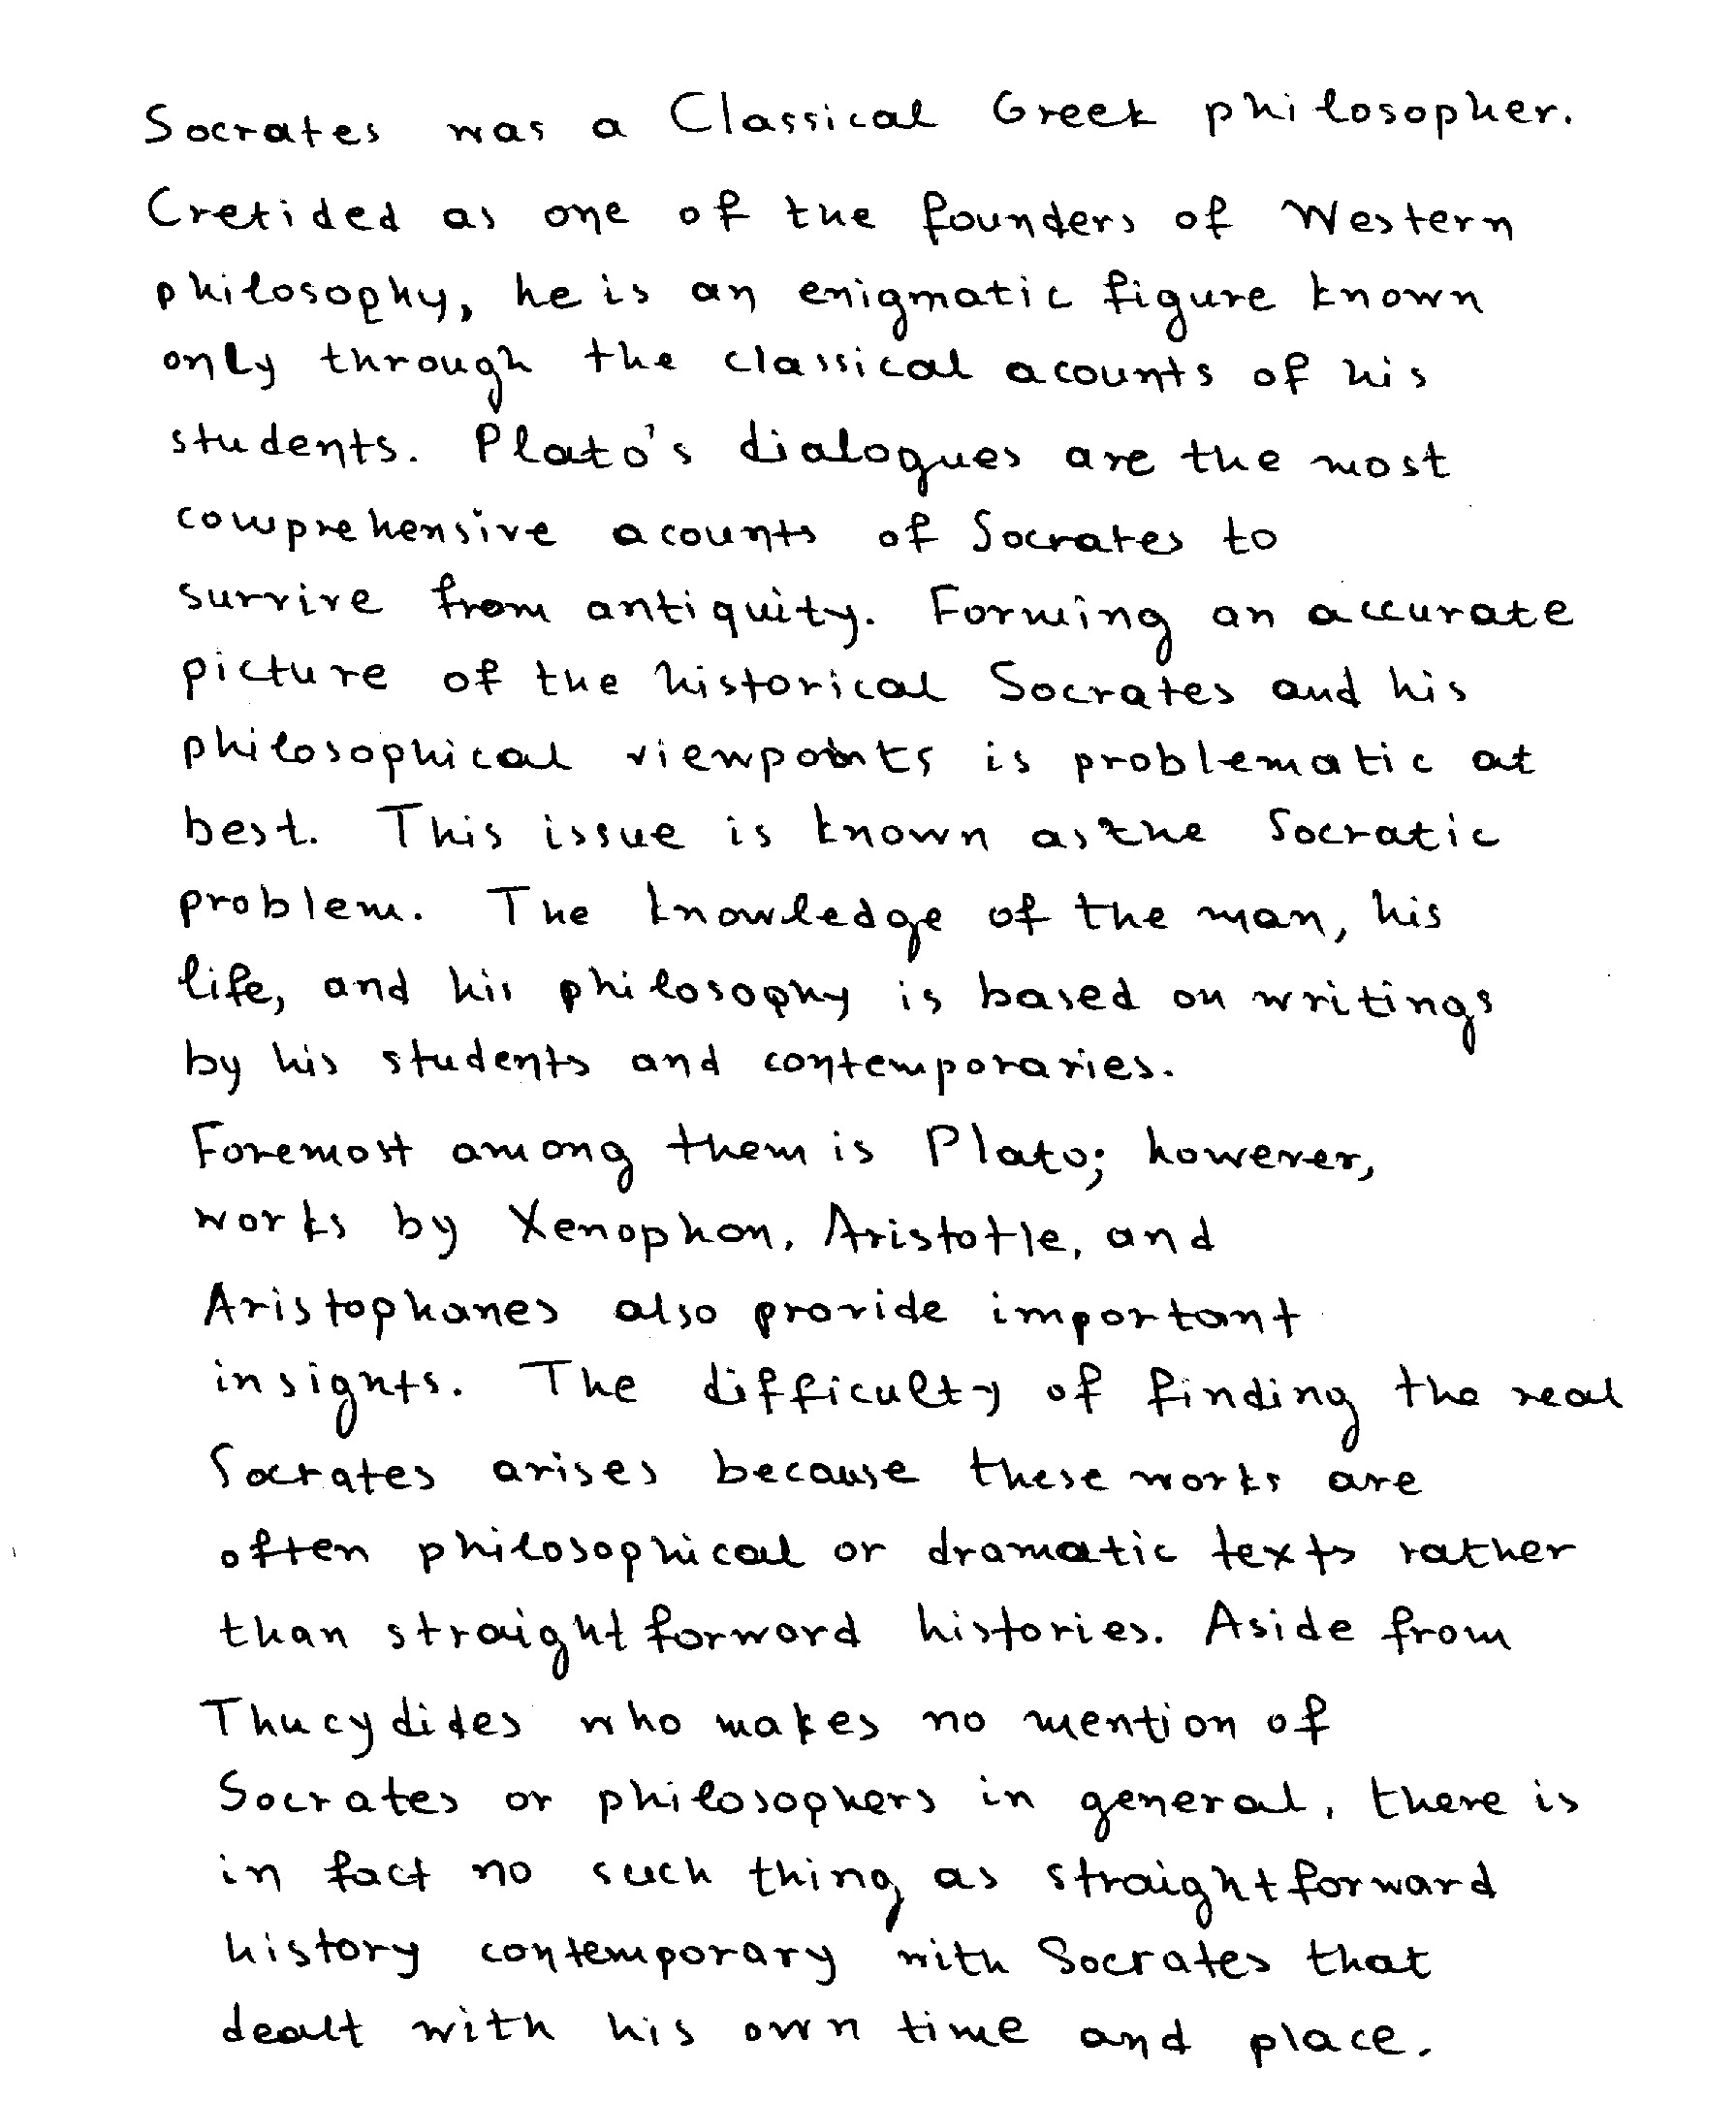 Socrates was a Classical Greek philosopher.
Cretided as one of the founders of Western
philosophy, he is an enigmatic figure known
only through the classical acounts of his
students. Plato's dialogues are the most
comprehensive acounts of Socrates to
survive from antiquity. Forming an accurate
picture of the historical Socrates and his
philosophical viewpoints is problematic at
best. This issue is known as the Socratic
problem. The knowledge of the man, his
life, and his philosophy is based on writings
by his students and contemporaries.
Foremost among them is Plato; however,
works by Xenophon, Aristotle, and
Aristophanes also provide important
insights. The difficulty of finding the real
Socrates arises because these works are
often philosophical or dramatic texts rather
than straightforword histories. Aside from
Thucydides who makes no mention of
Socrates or philosophers in general, there is
in fact no such thing as straightforward
history contemporary with Socrates that
dealt with his own time and place.